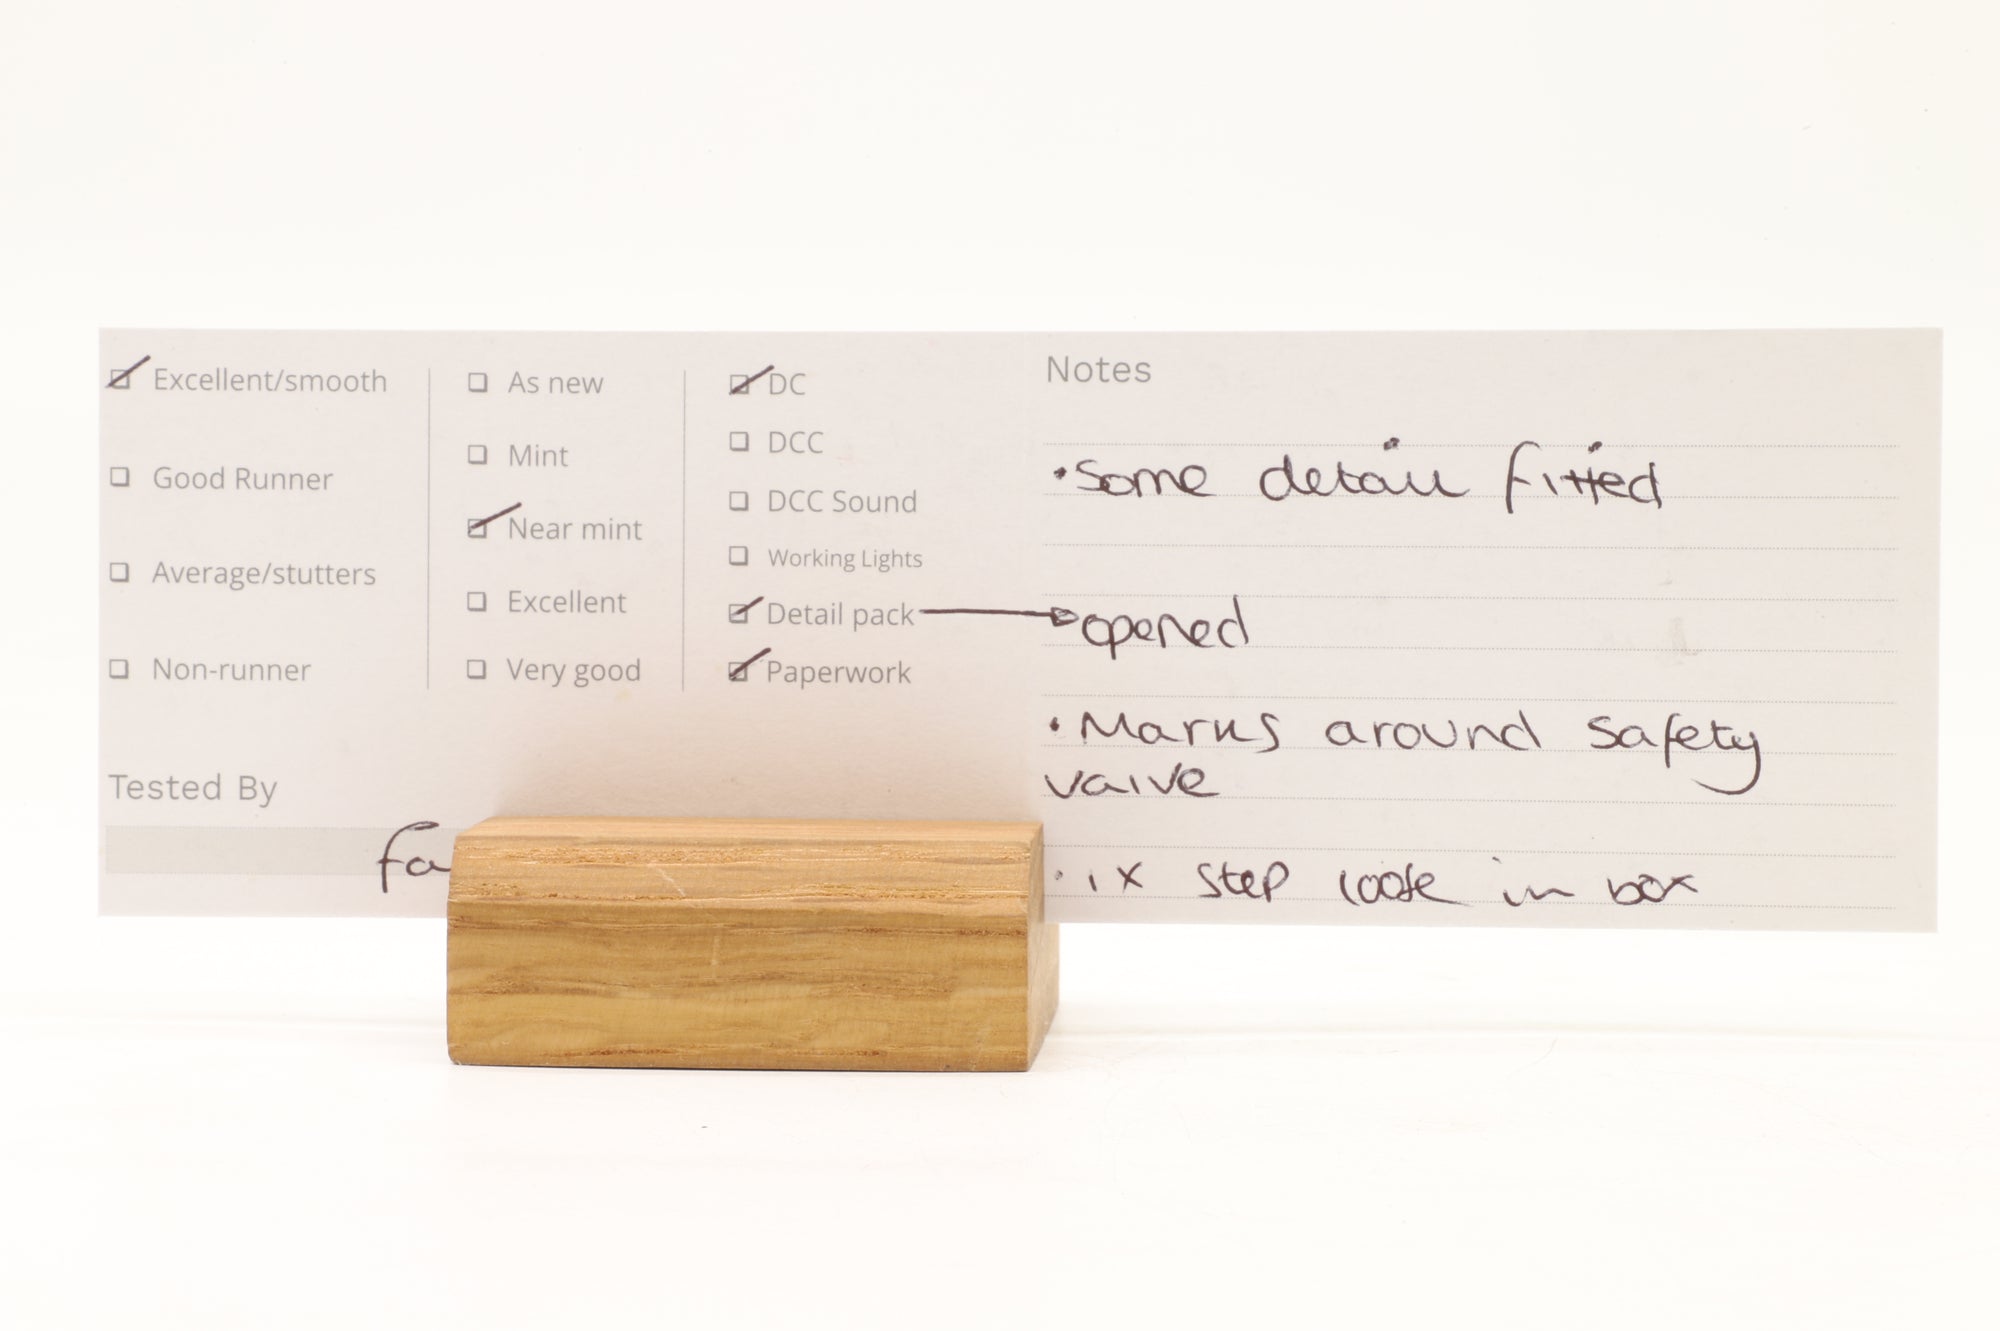 Excellent/smooth
Good Runner
Average/stutters
Non-runner
As new
Mint
Near mint
Excellent
Very good
DC
DCC
DCC Sound
Working Lights
Detail pack
Paperwork
Tested By
Notes
•Some detail fitted
opened
•Marks around safety
valve
•1x step loose in box